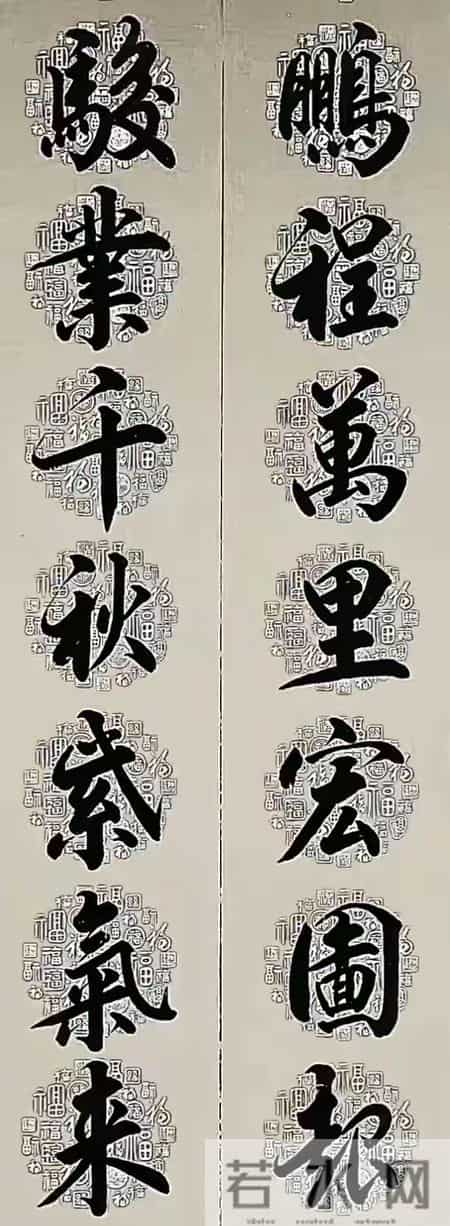 鵬程萬里宏圖起
駿業千秋紫氣来
若水网